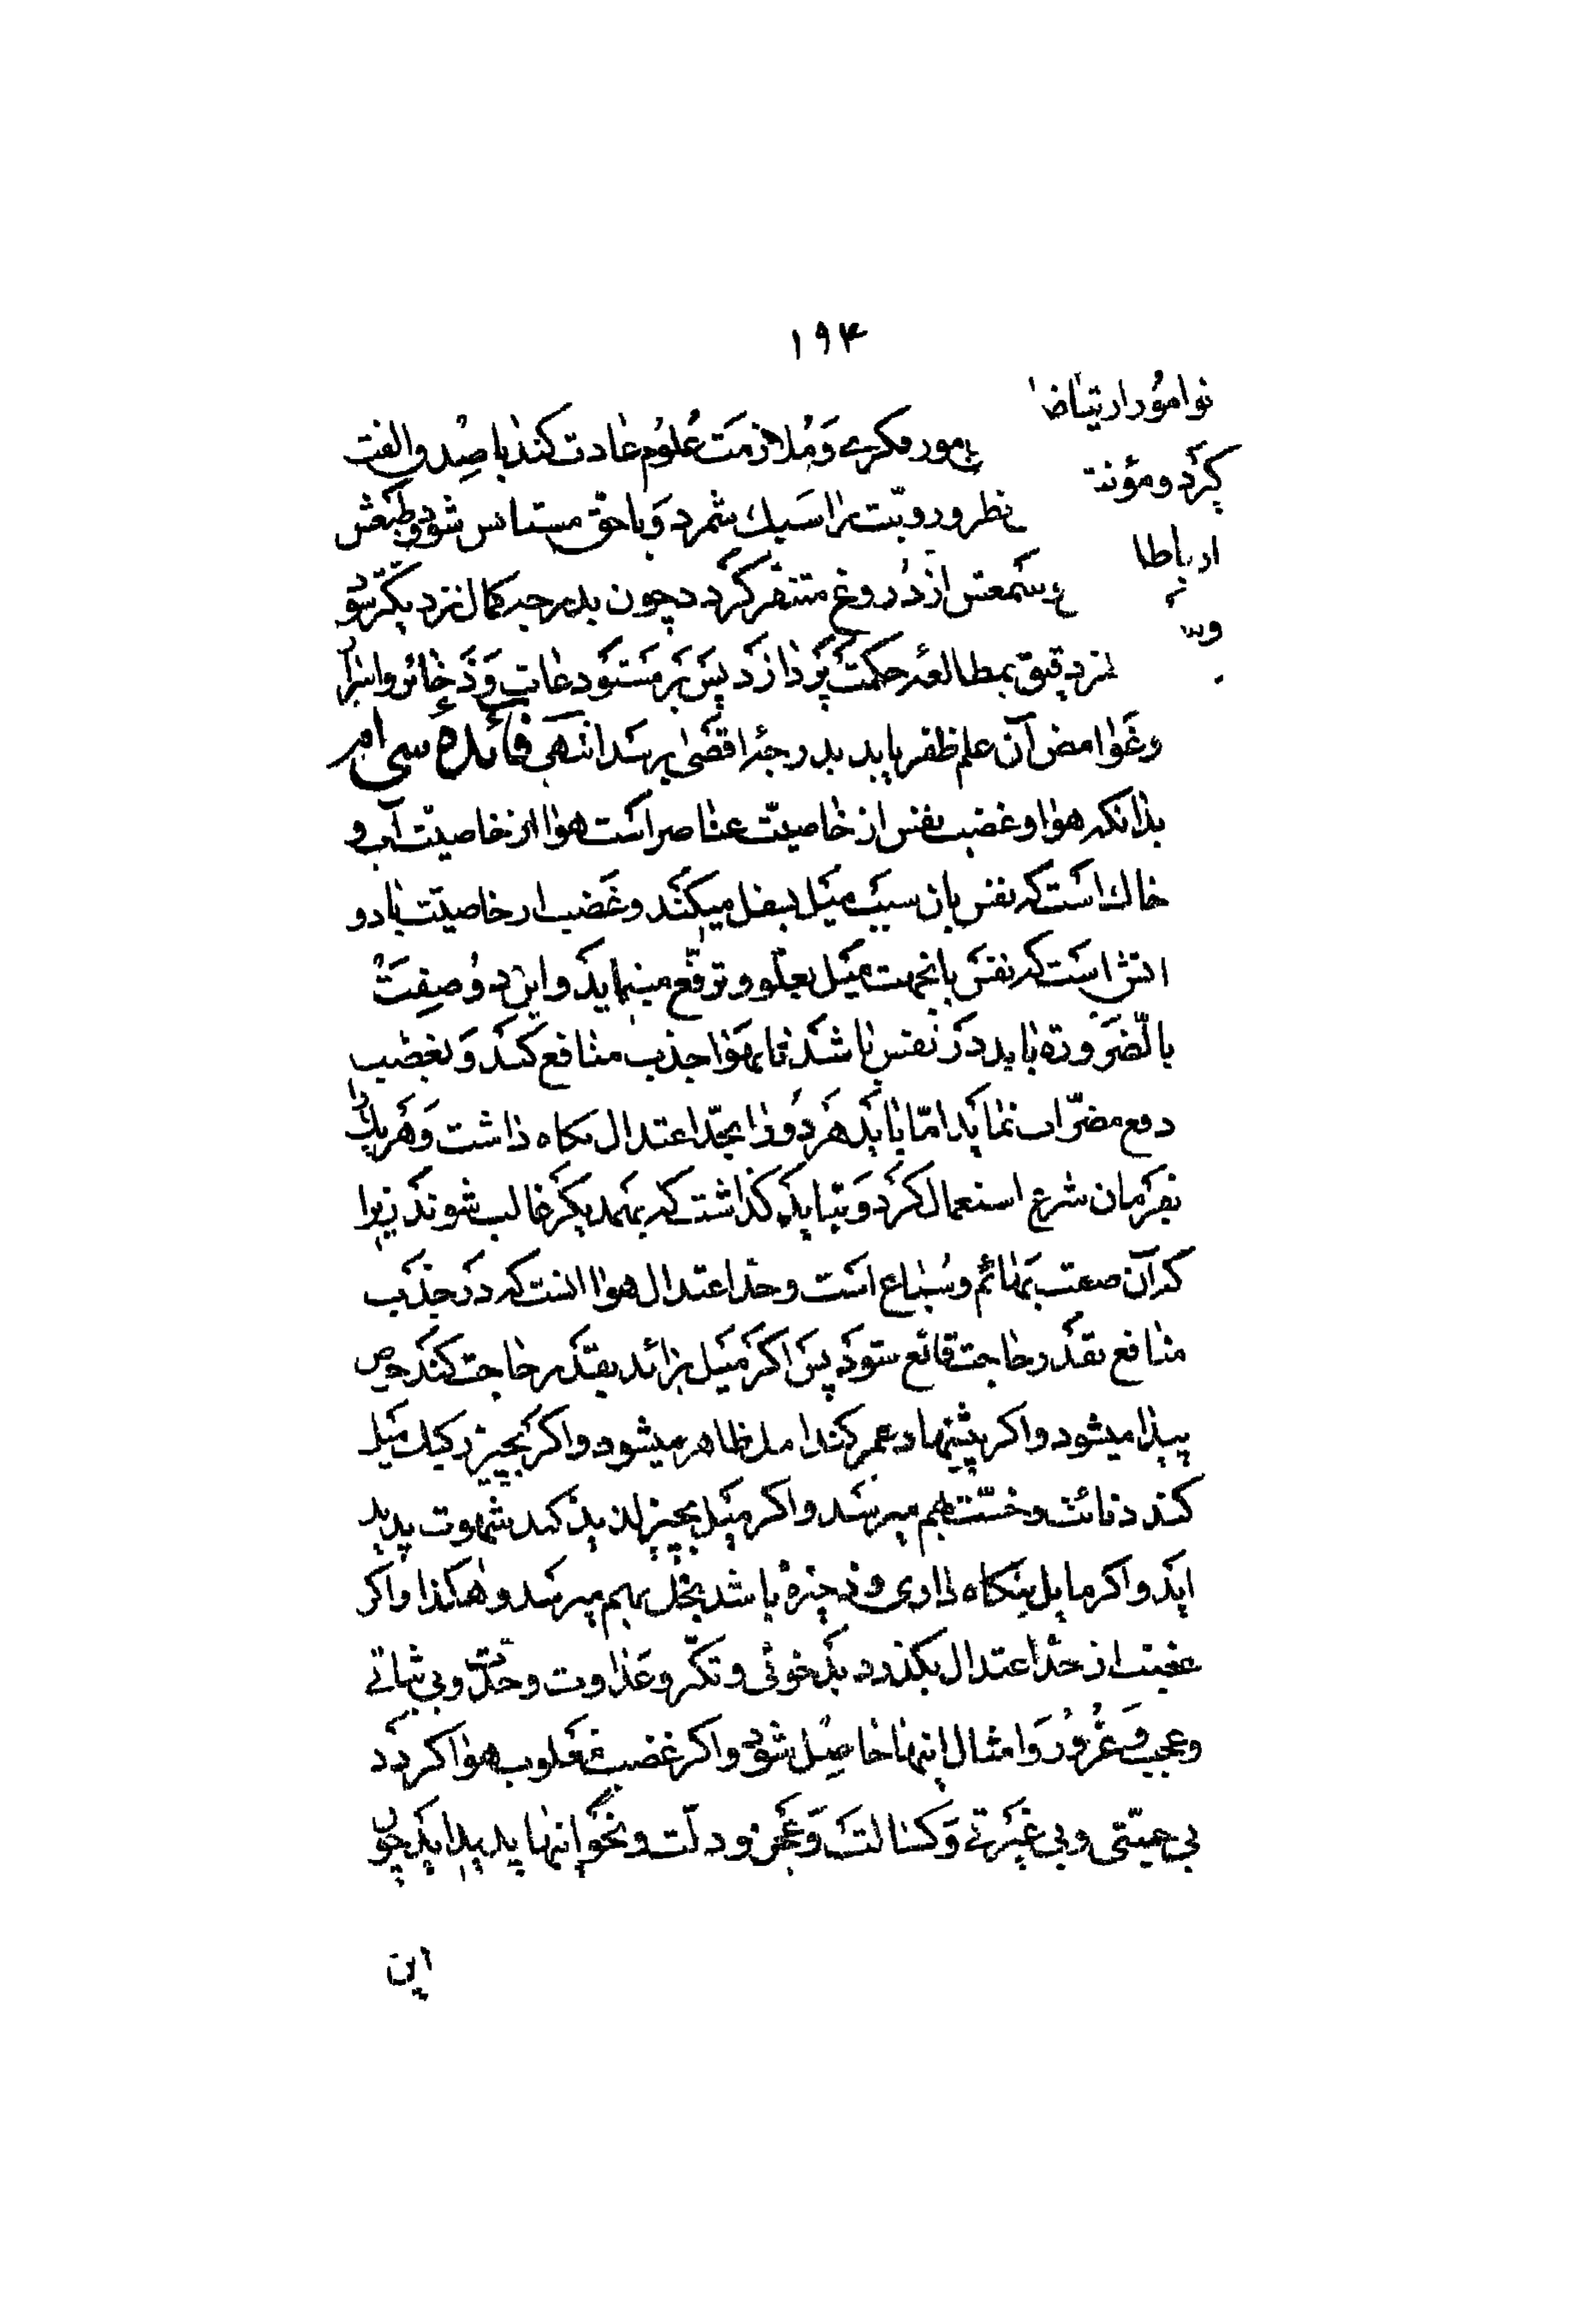 ۱۹۴
نوامور ارتیاضا
بامور فکری و ملازمت علوم عادت کند با صدق الفت
گیرد و مؤنت
نظر و رویت را سبک شمرد و با حق مستانس شود و طبعش
از باطل
و سمعش از دروغ متنفر گردد چون بدرجه کمال نزدیکتر شود
وسی
بمطالعه حکمت پردازد پس بر مستودعات و ذخائر و اسرار
و غوامض آن علم ظفر یابد بدرجه اقصی برسد انتهی فائده سی ام
بدانکه هوا و غضب نفس از خاصیت عناصر است هوا از خاصیت آب و
خاک است که نفس بان سبب میل بسفل میکند و غضب از خاصیت باد و
اتش است که نفس بانجهت میل بعلو و ترفع مینماید و این دو صفت
بالضروره باید در نفس باشد تا بهوا جذب منافع کند و بغضب
دفع مضرات نماید اما باید هر دو را بحد اعتدال نگاه داشت و هر یک را
بفرمان شرع استعمال کرد و نباید گذاشت که بهمدیگر غالب شوند زیرا
که آن صفت بهائم و سباع است و حد اعتدال هوا انست که در جذب
منافع بقدر حاجت قانع شود پس اگر میل بزائد بقدر حاجت کند حرص
پیدا میشود و اگر پیشنهاد عمر کند امل ظاهر میشود و اگر بچیز رکیک میل
کند دنائت و خست بهم میرسد و اگر میل بچیز لذیذ کند شهوت پدید
اید و اگر مایل بنگاه داری و ذخیره باشد بخل بهم میرسد و هکذا و اگر
غضب از حد اعتدال بگذرد بدخوئی و تکبر و عداوت و حدت و بی ثباتی
و عجب و غرور و امثال اینها حاصل شود و اگر غضب مغلوب هوا گردد
بی حمیتی و بی غیرتی و کسالت و عجز و ذلت و نحو اینها پدید اید چون
این